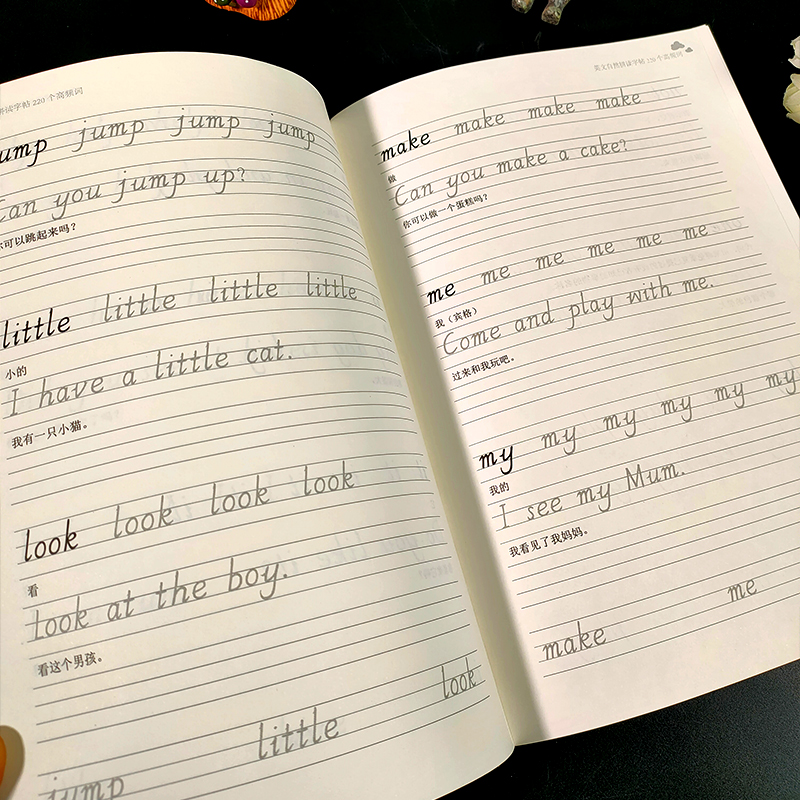 拼读字帖 220 个高频词
jump jump jump jump
Can you jump up?
你可以跳起来吗?
little little little little
小的
I have a little cat.
我有一只小猫。
look look look look
看
Look at the boy.
看这个男孩。
look
little
jump
英文自然拼读字帖 220 个高频词
make make make make
做
Can you make a cake?
你可以做一个蛋糕吗?
me me me me me me
我(宾格)
Come and play with me.
过来和我玩吧。
my my my my my my
我的
I see my Mum.
我看见了我妈妈。
me
make